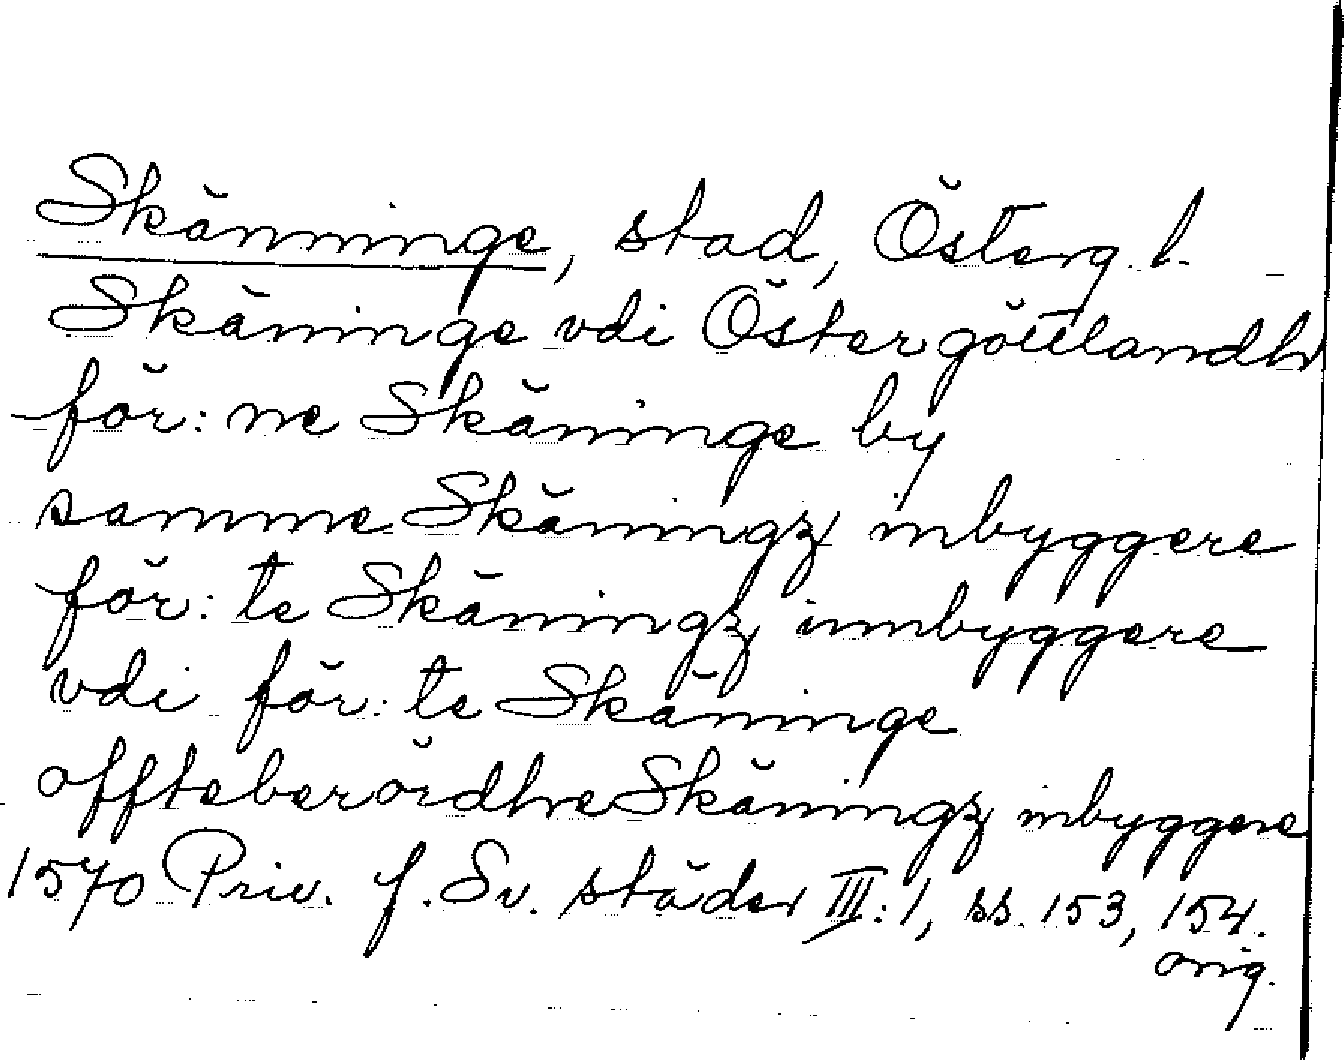 Skänninge, stad, Österg. l.
Skäninge vdi Östergöttlandh
för: ne Skäninge by
samme Skäningz inbyggere
för: te Skäningz innbyggere
vdi för: te Skäninge
offteberördhe Skäningz inbyggere
1570 Priv. f. Sv. städer III: 1, ss. 153, 154.
orig.